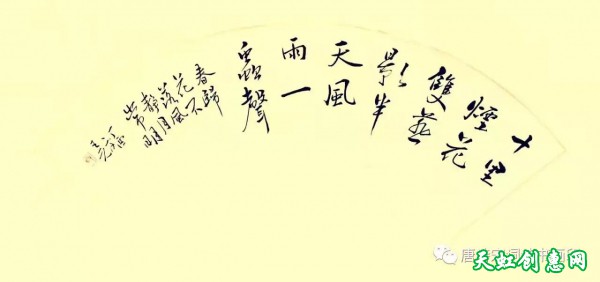 十里
煙花
雙燕
影半
天風
雨一
聲
春歸
花不
落風
靜月
常明
天虹创惠网